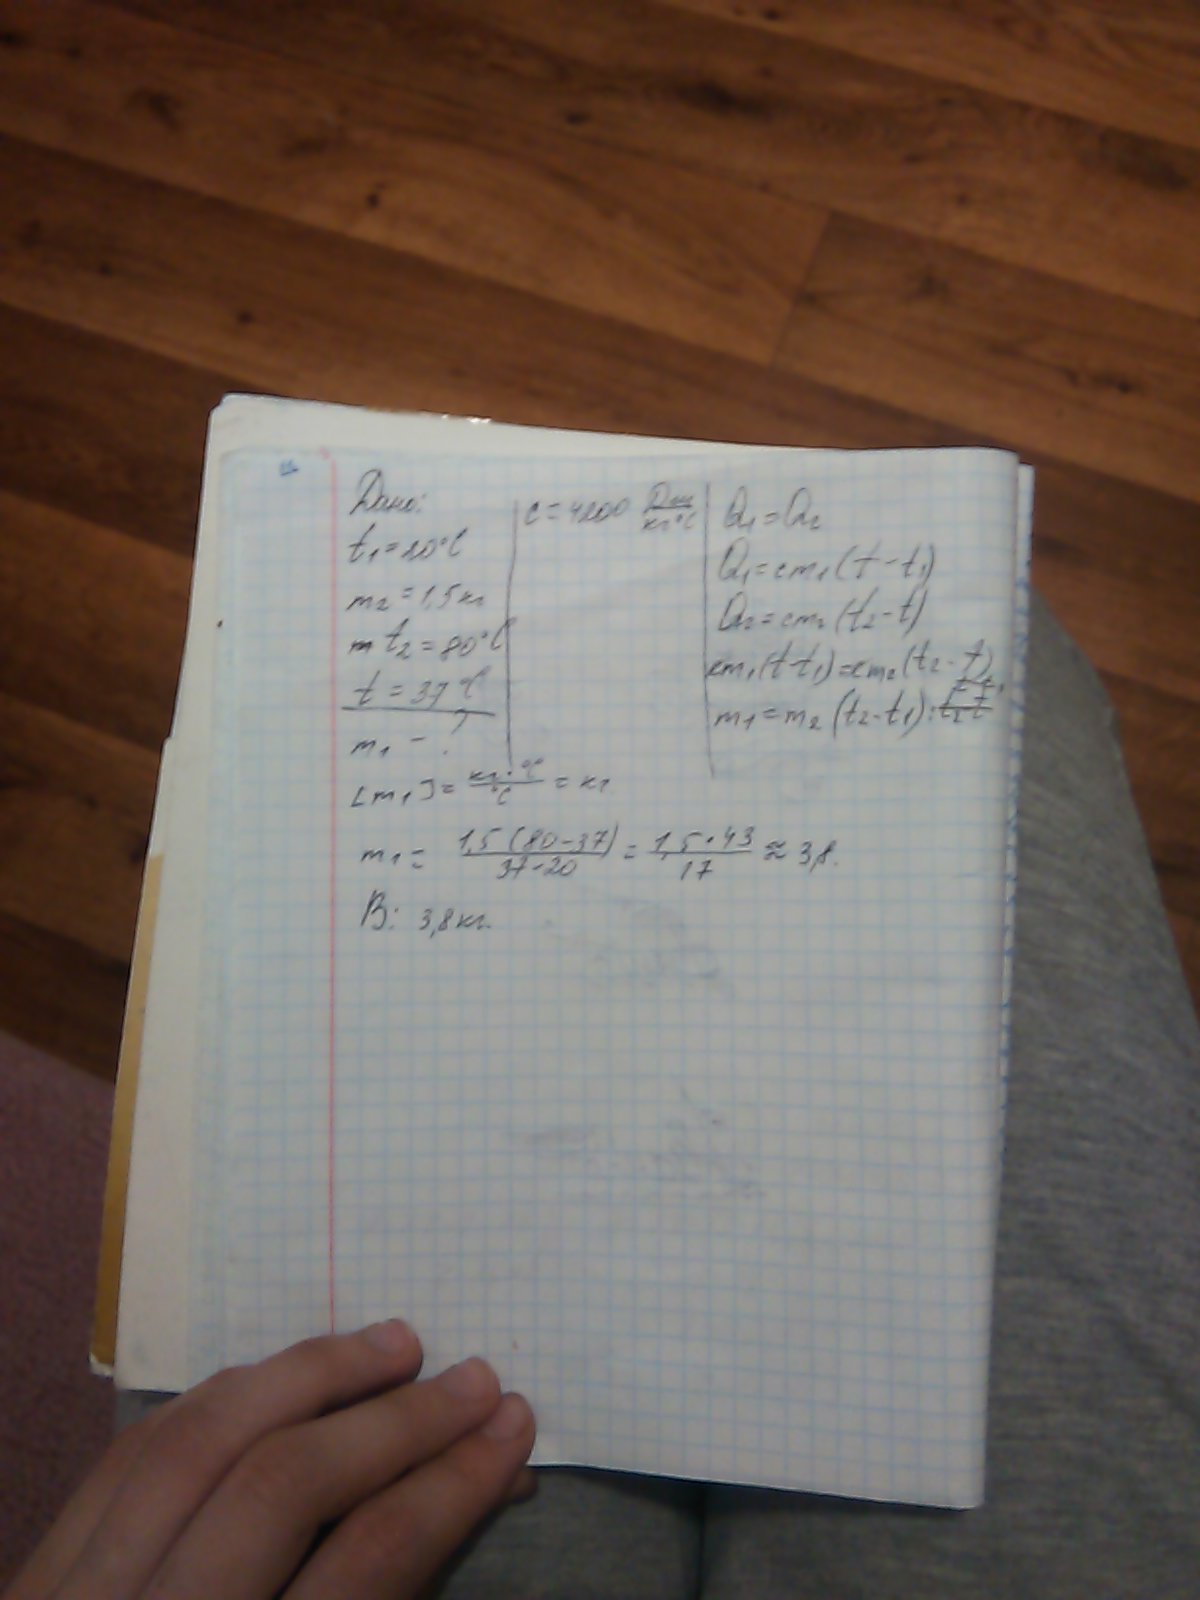 Дано:
t₁=20°C
m₂=1,5 кг
t₂=80°C
t=37°C
m₁-?
c=4200 Дж/кг°C
Q₁=Q₂
Q₁=cm₁(t-t₁)
Q₂=cm₂(t₂-t)
cm₁(t-t₁)=cm₂(t₂-t)
m₁=m₂(t₂-t₁):
[m₁]=кг·°C/°C=кг
m₁=1,5(80-37)/37-20=1,5·43/17≈3,8.
В: 3,8 кг.